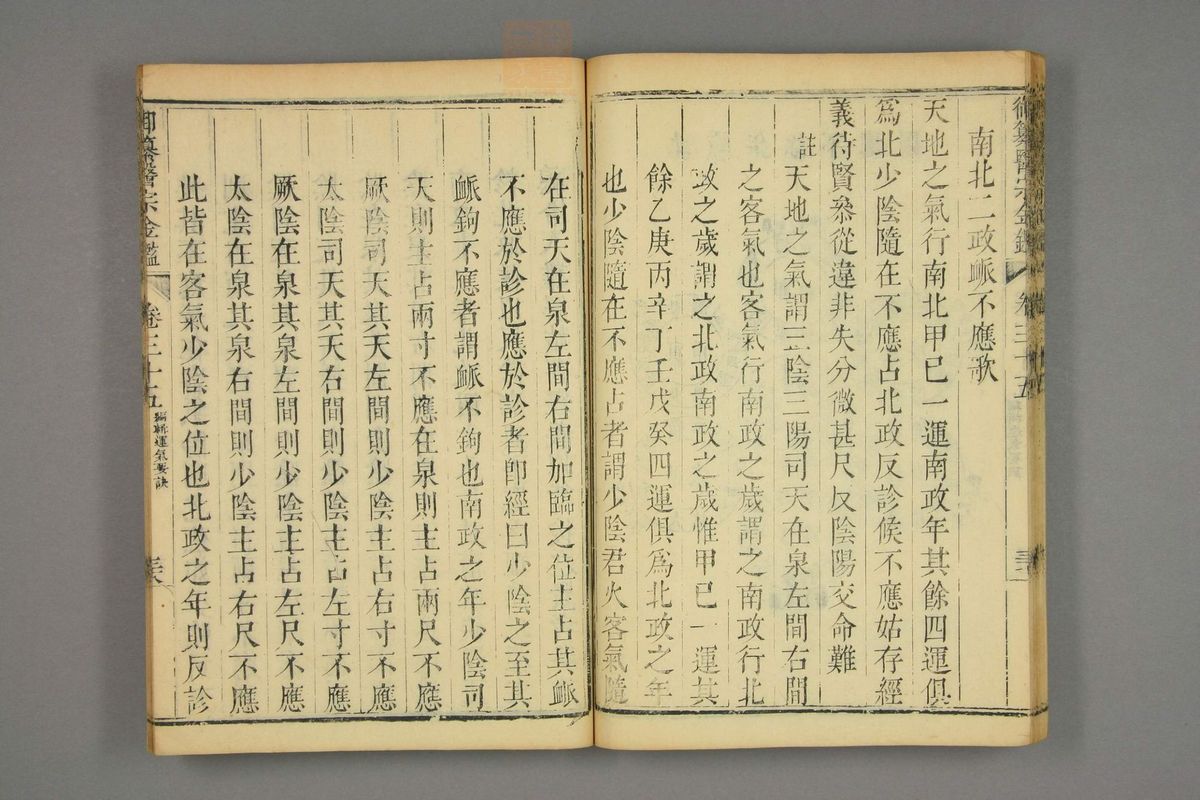 御纂醫宗金鑑 卷三十五
南北二政脈不應歌
天地之氣行南北甲已一運南政年其餘四運俱
爲北少陰隨在不應占北政反診候不應姑存經
義待賢叅從違非失分微甚尺反陰陽交命難
註天地之氣謂三陰三陽司天在泉左間右間
之客氣也客氣行南政之歲謂之南政行北
政之歲謂之北政南政之歲惟甲已一運其
餘乙庚丙辛丁壬戊癸四運俱爲北政之年
也少陰隨在不應占者謂少陰君火客氣隨
在司天在泉左間右間加臨之位主占其脈
不應於診也應於診者卽經曰少陰之至其
脈鉤不應者謂脈不鉤也南政之年少陰司
天則主占兩寸不應在泉則主占兩尺不應
厥陰司天其天左間則少陰主占右寸不應
太陰司天其天右間則少陰主占左寸不應
厥陰在泉其泉左間則少陰主占左尺不應
太陰在泉其泉右間則少陰主占右尺不應
此皆在客氣少陰之位也北政之年則反診
御纂醫宗金鑑 卷三十五 編輯運氣要訣